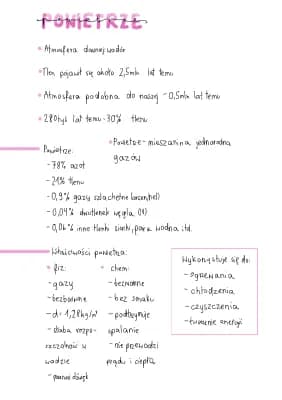 POWIETRZE
• Atmosfera dawniej wodór
• Tlen pojawił się około 2,5mln lat temu
• Atmosfera podobna do naszej -0,5mln lat temu
• 280tyś lat temu-30% tlenu
• Powietrze- mieszanina jednorodna
gazów
Powietrze:
-78% azot
-21% tlenu
-0,9% gazy szlachetne
-0,04% dwutlenek węgla
-0,06% inne tlenki siarki, para wodna itd.
Właściwości powietrza:
• fiz:
-gazy
-bezbarwne
-d=1,28kg/m³
-słaba rozpu-
szczalność w
wodzie
• chem:
-bezwonne
-bez smaku
-podtrzymuje
spalanie
-nie przewodzi
prądu i ciepła
Wykorzystuje się do:
-ogrzewania
-chłodzenia
-czyszczenia
-tworzenie energii